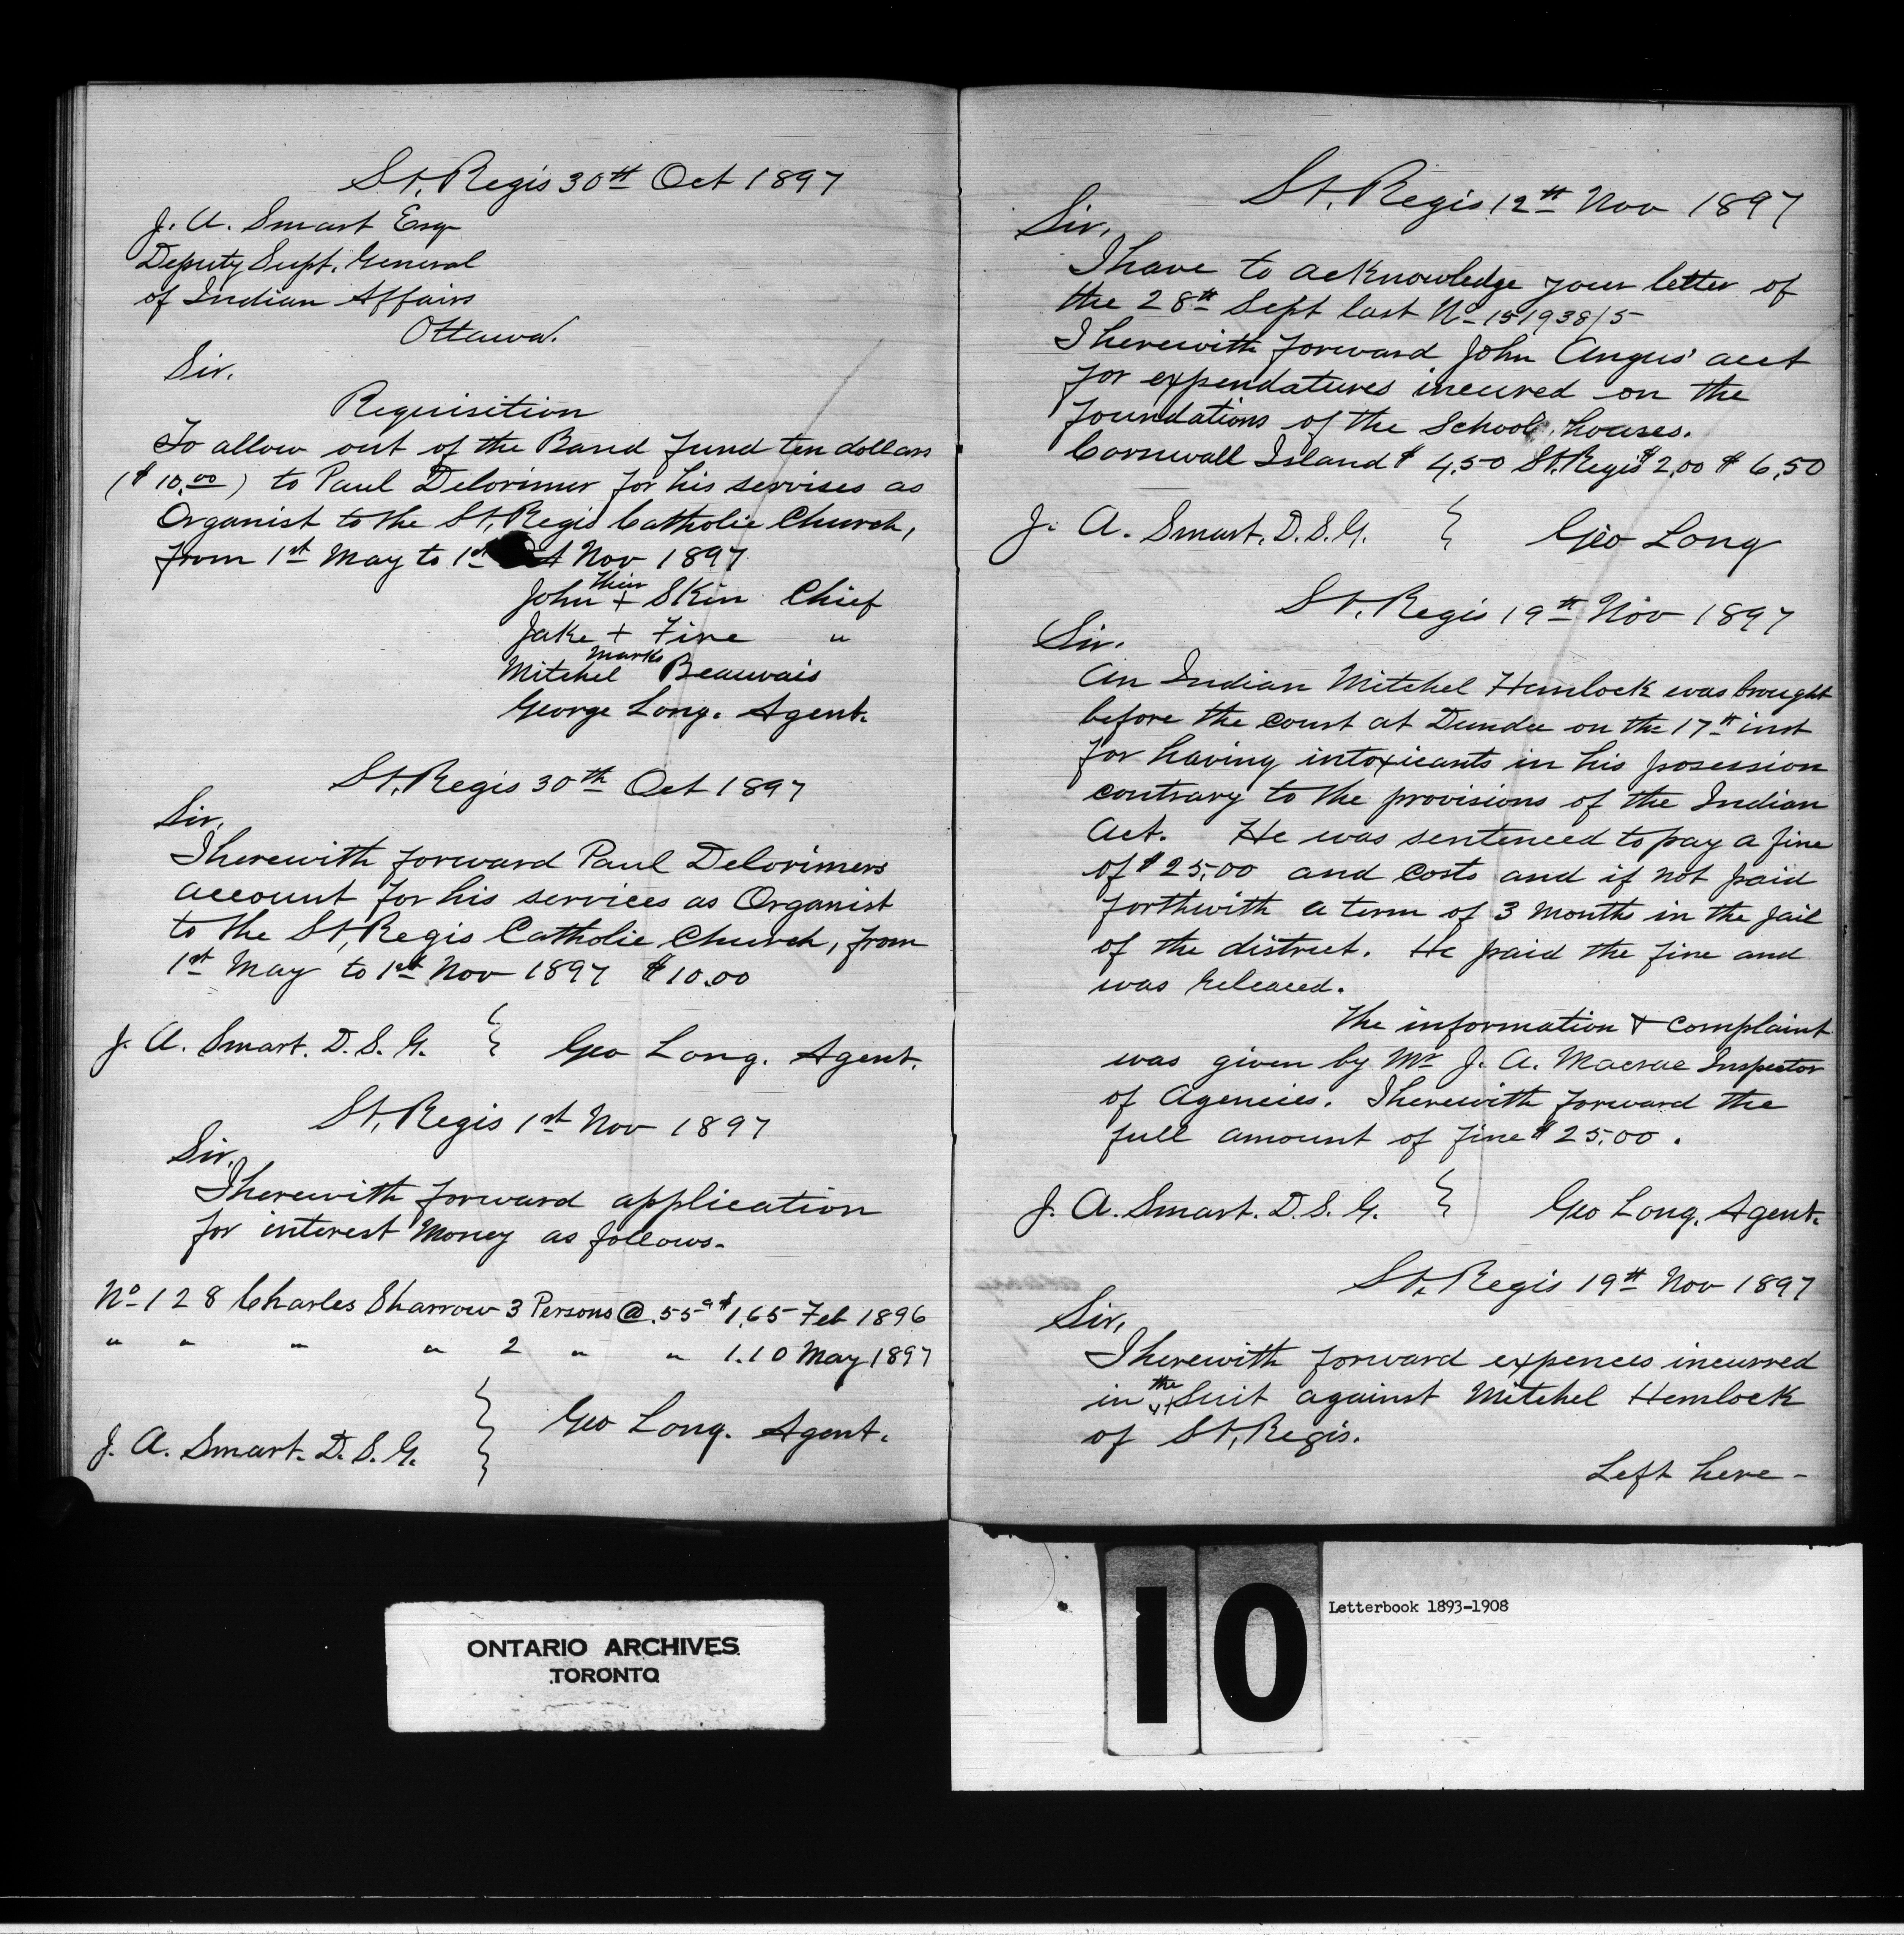 St. Regis 30th Oct 1897
J. A. Smart Esq
Deputy Supt. General
of Indian Affairs
Ottawa.
Sir.
Requisition
To allow out of the Band fund ten dollars
($10.00) to Paul Delorimer for his servises as
Organist to the St. Regis Catholic Church,
from 1st May to 1st Nov 1897
their
John + Skin Chief
Jake + Fire "
marks
Mitchel Beauvais
George Long. Agent.
St. Regis 30th Oct 1897
Sir,
I herewith forward Paul Delorimers
account for his services as Organist
to the St, Regis Catholic Church, from
1st May to 1st Nov 1897 $10.00
J. A. Smart. D. S. G. } Geo Long. Agent.
St, Regis 1st Nov 1897
Sir,
I herewith forward application
for interest Money as follows.
No 128 Charles Sharrow 3 Persons @ .55c $1.65 Feb 1896
" " " " 2 " " 1.10 May 1897
J. A. Smart. D. S. G. } Geo Long. Agent.
St. Regis 12th Nov 1897
Sir,
I have to acknowledge your letter of
the 28th Sept last No 151938/5
I herewith forward John Angus' acct
for expendatures incured on the
foundations of the School houses.
Cornwall Island $4.50 St. Regis $2.00 $6.50
J. A. Smart. D. S. G. } Geo Long
St. Regis 19th Nov 1897
Sir.
An Indian Mitchel Hemlock was brought
before the court at Dundee on the 17th inst
for having intoxicants in his posession
contrary to the provisions of the Indian
Act. He was sentenced to pay a fine
of $25.00 and costs and if not paid
forthwith a term of 3 months in the jail
of the district. He paid the fine and
was released.
The information & complaint
was given by Mr J. A. Macrae Inspector
of Agencies. I herewith forward the
full amount of fine $25.00.
J. A. Smart. D. S. G. } Geo Long. Agent.
St. Regis 19th Nov 1897
Sir,
I herewith forward expences incurred
in the Suit against Mitchel Hemlock
of St, Regis.
Left here -
10
Letterbook 1893-1908
ONTARIO ARCHIVES
TORONTO